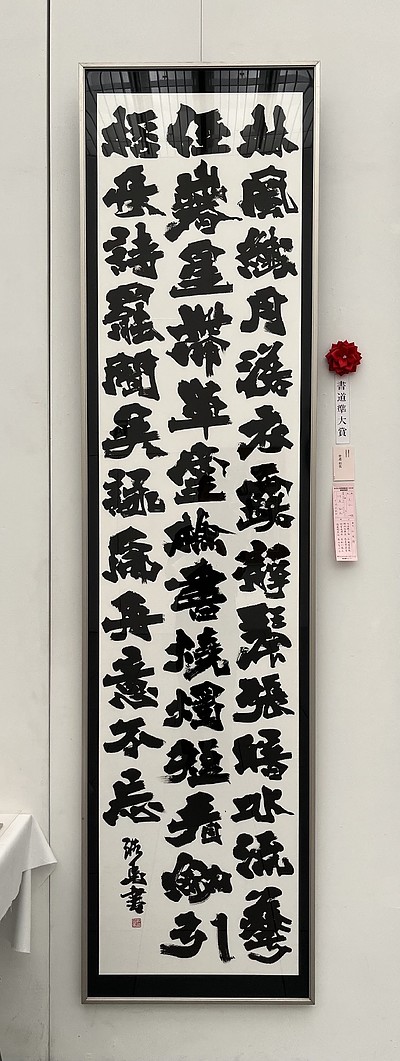 林風纖月落衣露靜琴張暗水流華
徑春星帶草堂檢書燒燭短看劍引
桮長詩罷聞吳詠扁舟意不忘
書
書道準大賞